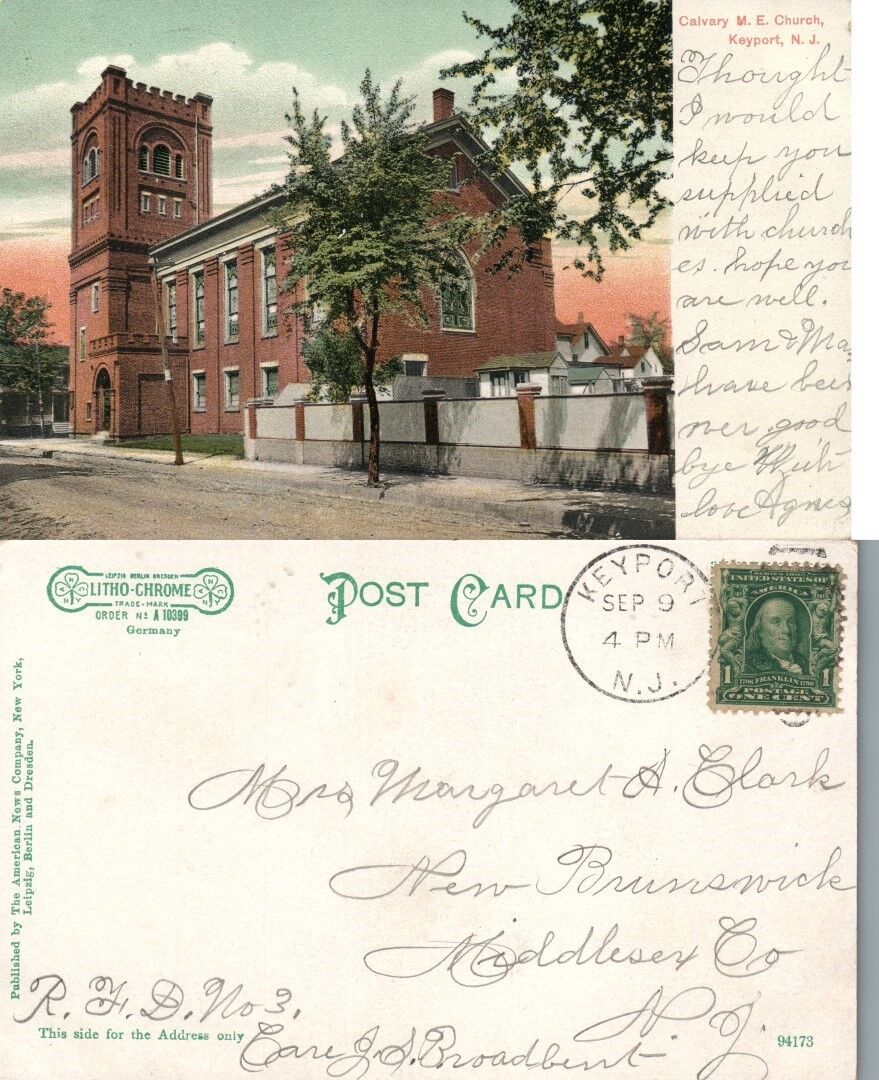 Calvary M. E. Church,
Keyport, N. J.
Thought
I would
keep you
supplied
with church
es. hope you
are well.
Sam & Ma
have been
over good
bye With
love Agnes
LEIPZIG BERLIN DRESDEN
LITHO-CHROME
TRADE-MARK
ORDER No A 10399
Germany
POST CARD
KEYPORT
SEP 9
4 PM
N.J.
UNITED STATES OF
AMERICA
1 1706 FRANKLIN 1790 1
POSTAGE
ONE CENT
Published by The American News Company, New York,
Leipzig, Berlin and Dresden.
Mrs Margaret A. Clark
New Brunswick
Middlesex Co
N. J.
R. F. D. No 3.
This side for the Address only
Care J. S. Broadbent.
94173